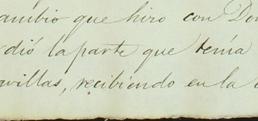 cambio que hizo con Don
dió la parte que tenía
villas, recibiendo en la